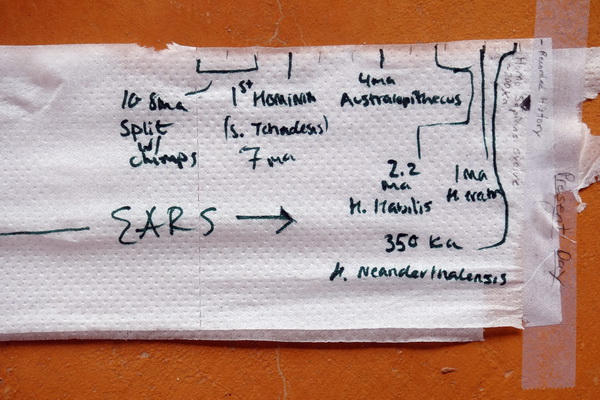 10-8ma
Split
w/
chimps
1st Hominin
(S. Tchadesis)
7 ma
4ma
Australopithecus
2.2
ma
H. Habilis
1ma
H. erectus
EARS →
350 Ka
H. Neanderthalensis
- Recorded History
Present Day